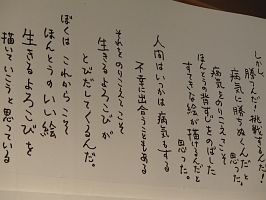 しかし、
勝つんだ!挑戦するんだ!
病気に勝ちぬくんだと
思った。
病気をのりこえてこそ
ほんとうの背すじをのばした
すてきな絵が描けるんだと
思った。
人間はいつかは病気もする
不幸に出合うこともある
それをのりこえてこそ
生きるよろこびが
とびだしてくるんだ。
ぼくはこれからこそ
ほんとうのいい絵
生きるよろこびを
描いていこうと思っている